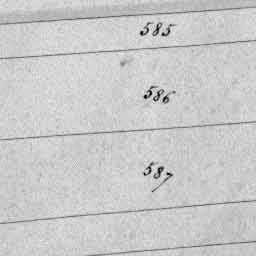 585
586
587